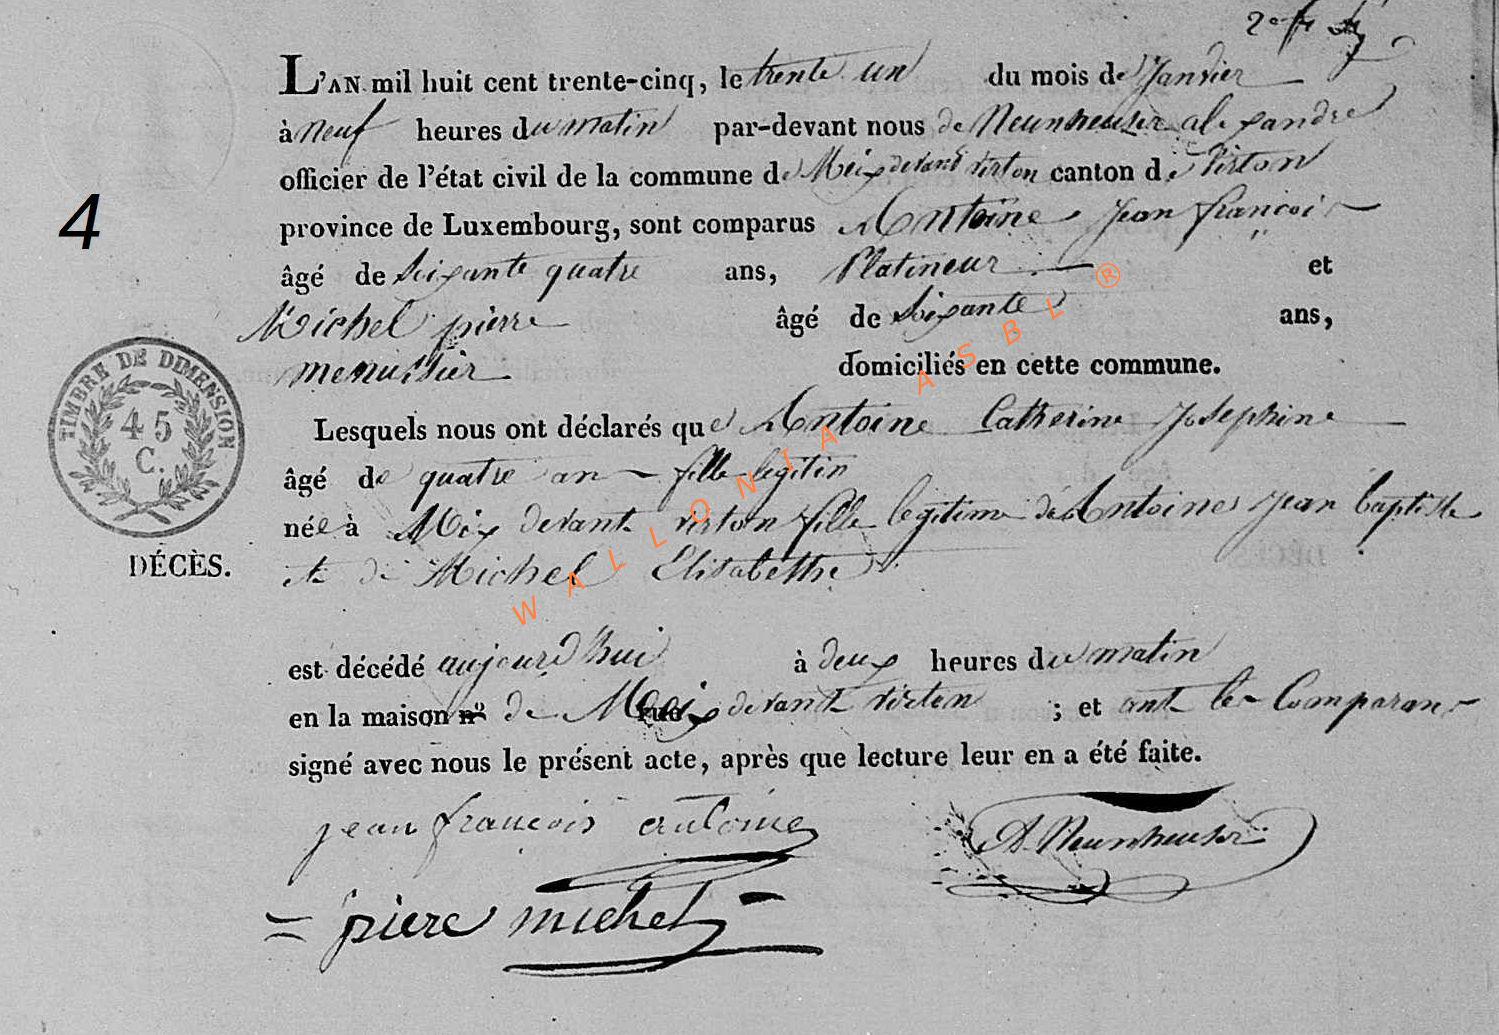 L'AN mil huit cent trente-cinq, le trente un du mois de Janvier
à neuf heures du matin par-devant nous de Neunheuser alexandre
officier de l'état civil de la commune de Meix devant virton canton de Virton
province de Luxembourg, sont comparus Antoine Jean françois
4
âgé de Soixante quatre ans, Platineur et
Michel pierre âgé de Soixante ans,
menuisier domiciliés en cette commune.
TIMBRE DE DIMENSION
45
C.
Lesquels nous ont déclarés que Antoine Catherine Josephine
âgé de quatre an fille legitim
née à Meix devant virton fille legitime de Antoine Jean baptiste
DÉCÈS.
et de Michel Elisabethe
est décédé aujourd'hui à deux heures du matin
en la maison nº de Meix rue devant virton ; et ont les Comparans
signé avec nous le présent acte, après que lecture leur en a été faite.
jean francois antoine
A. Neunheuser
piere michel
WALLONIA ASBL ®